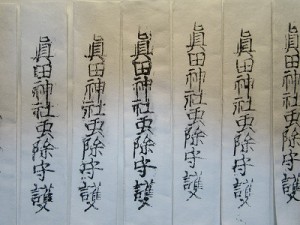 眞田神社虫除守護
眞田神社虫除守護
眞田神社虫除守護
眞田神社虫除守護
眞田神社虫除守護
眞田神社虫除守護